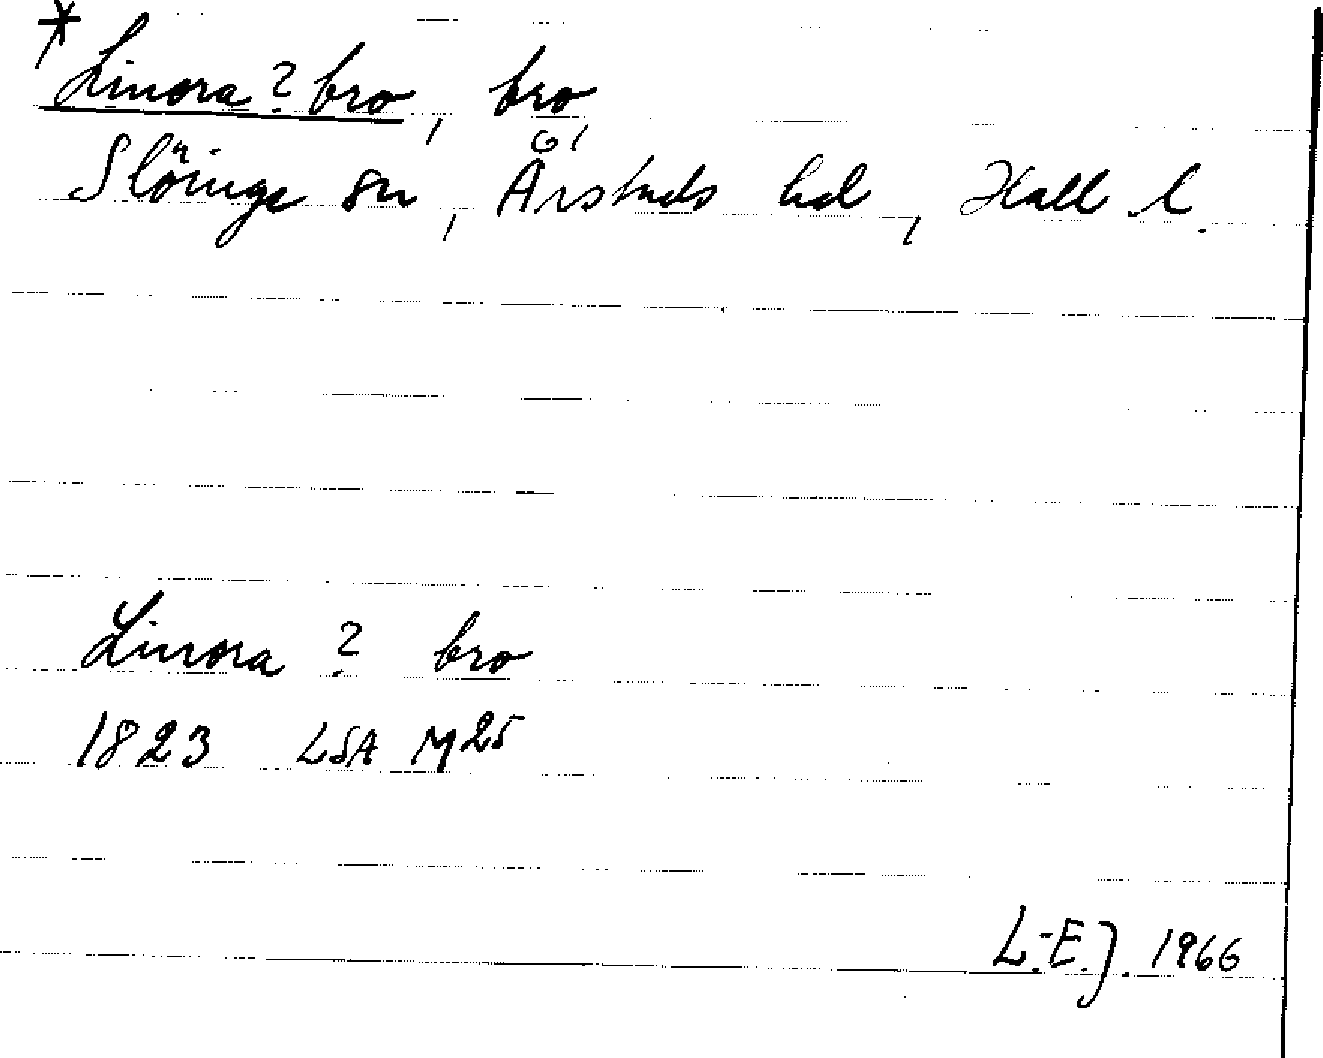 * Linora ? bro, bro,
Slöinge sn, Årstads hd, Hall l.
Linora ? bro
1823 LSA M25
L.-E.J. 1966